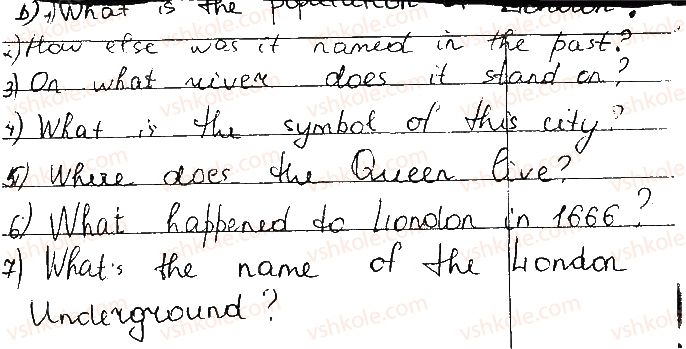 b) 1) What is the population of London?
2) How else was it named in the past?
3) On what river does it stand on?
4) What is the symbol of this city?
5) Where does the Queen live?
6) What happened to London in 1666?
7) What's the name of the London
Underground?
vshkole.com